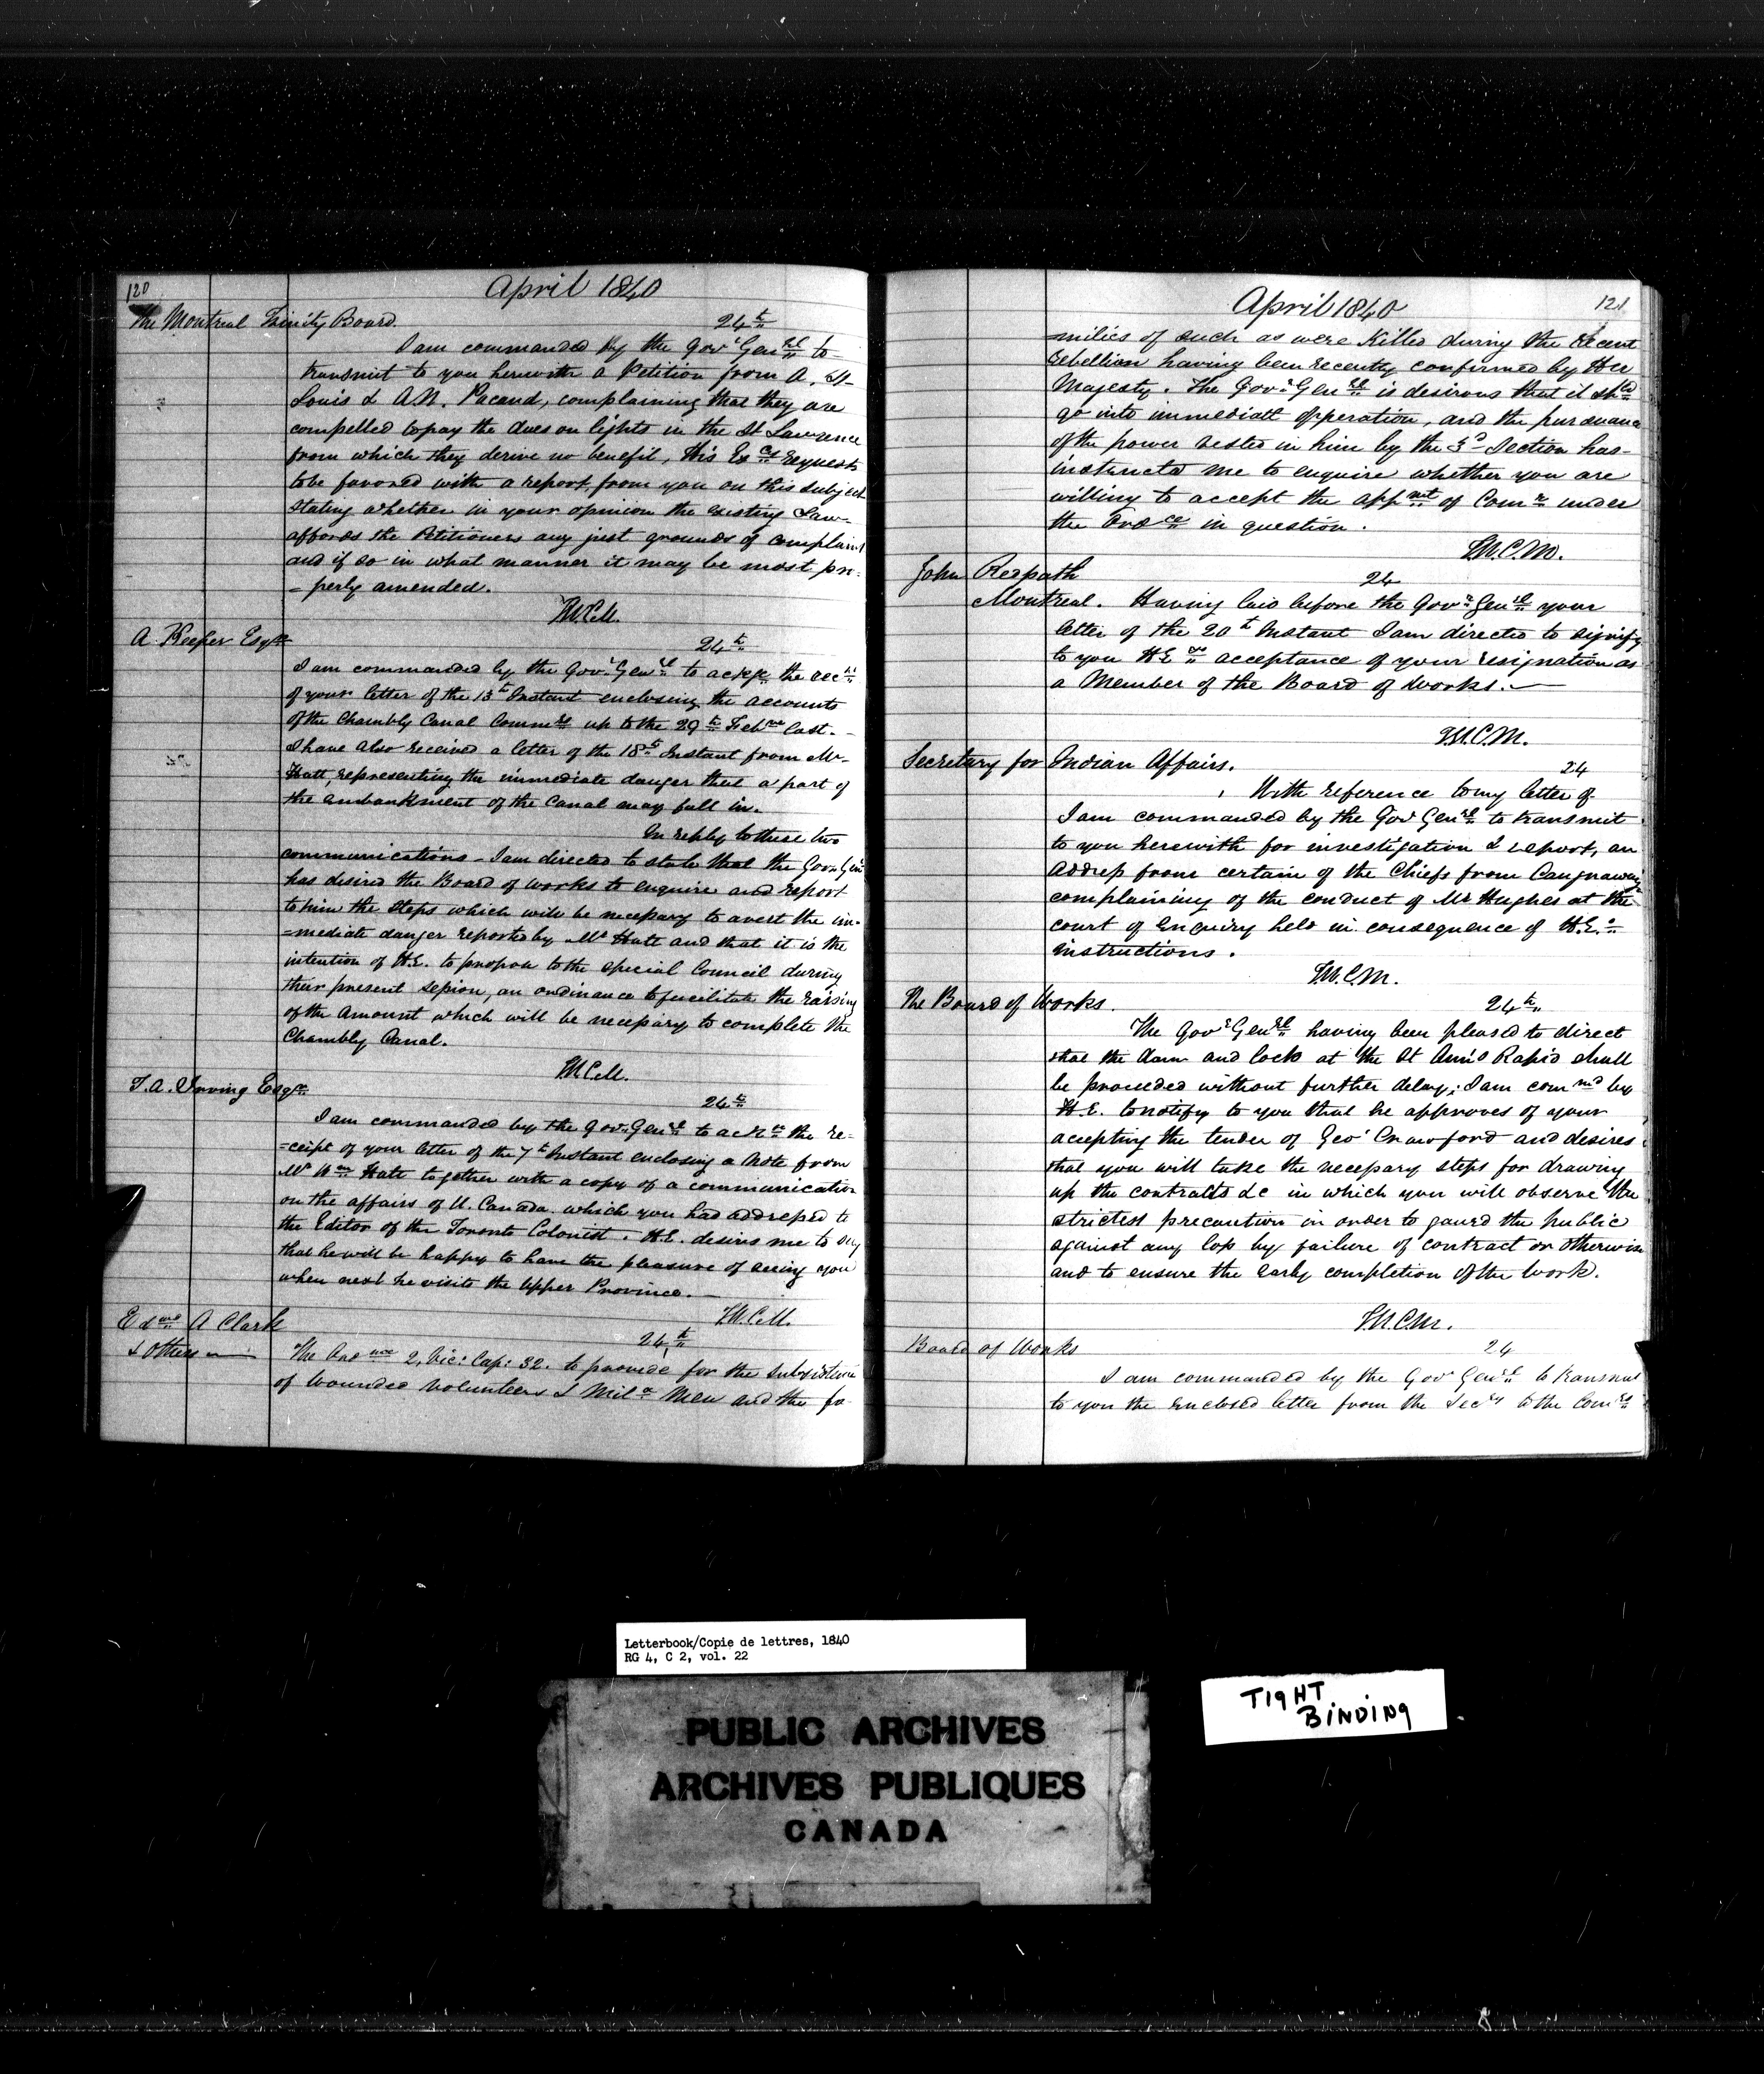 120
April 1840
The Montreal Trinity Board.
24th
I am commanded by the Govr Genral to
transmit to you herewith a Petition from A. St
Louis & A.N. Pacaud, complaining that they are
compelled to pay the dues on lights in the St Lawrence
from which they derive no benefit, His Excy requests
to be favored with a report from you on this subject
stating whether in your opinion the existing Law
affords the Petitioners any just grounds of complaint
and if so in what manner it may be most pro=
=perly amended.
T.W.C.M.
A Keefer Esqre
24th
I am commanded by the Govr Genral to ackge the rect
of your letter of the 13th Instant enclosing the accounts
of the Chambly Canal Commrs up to the 29th Feb last.
I have also received a letter of the 18th Instant from Mr
Hatt, representing the immediate danger that a part of
the embankment of the Canal may fall in.
In reply to these two
communications - I am directed to state that the Govr Genl
has desired the Board of Works to enquire and report
to him the steps which will be necessary to avert the im=
=mediate danger reported by Mr Hatt and that it is the
intention of H.E. to propose to the special Council during
their present session, an ordinance to facilitate the raising
of the amount which will be necessary to complete the
Chambly Canal.
T.W.C.M.
T.A. Irving Esqre
24th
I am commanded by the Govr Genral to ackn the re=
=ceipt of your letter of the 7th Instant enclosing a note from
Mr Wm Hate together with a copy of a communication
on the affairs of U. Canada which you had addressed to
the Editor of the Toronto Colonist. H.E. desires me to say
that he will be happy to have the pleasure of seeing you
when next he visits the Upper Province. —
T.W.C.M.
Edwd A Clark
& Others —
24th
The Ordnce 2, Vic: Cap: 32. to provide for the subsistence
of wounded volunteers & Mila Men and the fa
121
April 1840
milies of such as were killed during the recent
rebellion having been recently confirmed by Her
Majesty. The Govr Genral is desirous that it shd
go into immediate operation, and the pursuance
of the power vested in him by the 3d Section has
instructed me to enquire whether you are
willing to accept the appmt of Comr under
the Ordce in question.
T.W.C.M.
John Redpath
24
Montreal. Having laid before the Govr Genral your
letter of the 20th Instant I am directed to signify
to you H.E. acceptance of your resignation as
a Member of the Board of Works. —
T.W.C.M.
Secretary for Indian Affairs.
24
With reference to my letter of
I am commanded by the Gov Genral to transmit
to you herewith for investigation & report, an
address from certain of the Chiefs from Caugnawaga
complaining of the conduct of Mr Hughes at the
court of enquiry held in consequence of H.E.s
instructions.
T.W.C.M.
The Board of Works.
24th
The Govr Genral having been pleased to direct
that the dam and lock at the St Ann's Rapid shall
be proceeded without further delay; I am commd by
H.E. to notify to you that he approves of your
accepting the tender of Geo Crawford and desires
that you will take the necessary steps for drawing
up the contracts &c in which you will observe the
strictest precaution in order to gaurd the public
against any loss by failure of contract or otherwise
and to ensure the early completion of the work.
T.W.C.M.
Board of Works
24
I am commanded by the Govr Genral to transmit
to you the enclosed letter from the Secry to the Comrs
Letterbook/Copie de lettres, 1840
RG 4, C 2, vol. 22
PUBLIC ARCHIVES
ARCHIVES PUBLIQUES
CANADA
TIGHT
BINDING